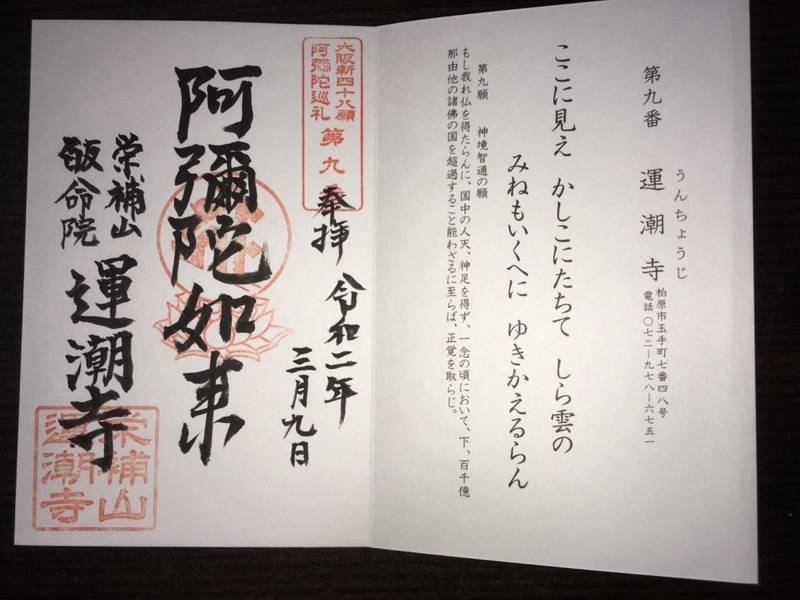 第九番　運潮寺
うんちょうじ
柏原市玉手町七番四八号
電話〇七二ー九七八ー六七五一
ここに見え　かしこにたちて　しら雲の
みねもいくへに　ゆきかえるらん
第九願　神境智通の願
もし我れ仏を得たらんに、国中の人天、神足を得ず、一念の頃において、下、百千億
那由他の諸佛の国を超過すること能わざるに至らば、正覚を取らじ。
大阪新四十八願
阿彌陀巡礼　第九
奉拝　令和二年
三月九日
阿彌陀如来
栄補山
皈命院
運潮寺
栄補山
運潮寺